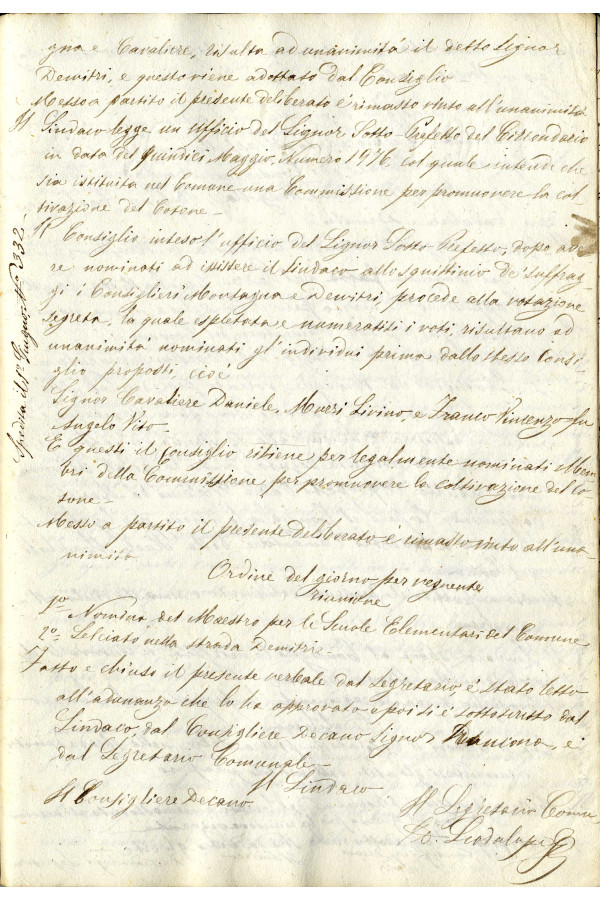 gna e Cavaliere, risulta ad unanimità il detto Signor
Demitri, e questo viene adottato dal Consiglio
Messo a partito il presente deliberato è rimasto vinto all'unanimità
Il Sindaco legge un ufficio del Signor Sotto-Prefetto del Circondario
in data del quindici Maggio, Numero 1976 col quale intende che
sia istituita nel Comune una Commissione per promuovere la col
tivazione del Cotone -
Il Consiglio inteso l'ufficio del Signor Sotto Prefetto, dopo ave
re nominati ad assistere il Sindaco allo squittinio de' suffrag
gi i Consiglieri Montagna e Demitri, procede alla votazione
segreta, la quale espletata e numeratisi i voti, risultano ad
unanimità nominati gl'individui prima dallo stesso Consi-
glio proposti, cioè
Signor Cavaliere Daniele, Livino, e Franco Vincenzo fu
Angelo Vito -
E questi il Consiglio ritiene per legalmente nominati Mem-
bri della Commissione per promuovere la coltivazione del Co
tone -
Messo a partito il presente deliberato è rimasto vinto all'una-
nimità
Ordine del giorno per vegnente
riunione
1º Nomina del Maestro per le Scuole Elementari del Comune
2º Selciato nella strada Demitri -
Fatto e chiuso il presente verbale dal Segretario è stato letto
all'adunanza che lo ha approvato e poi si è sottoscritto dal
Sindaco, dal Consigliere Decano Signor e
dal Segretario Comunale -
Il Sindaco
Il Consigliere Decano
Il Segretario Comu
Spedita il 1º Giugno, Nº 332 -